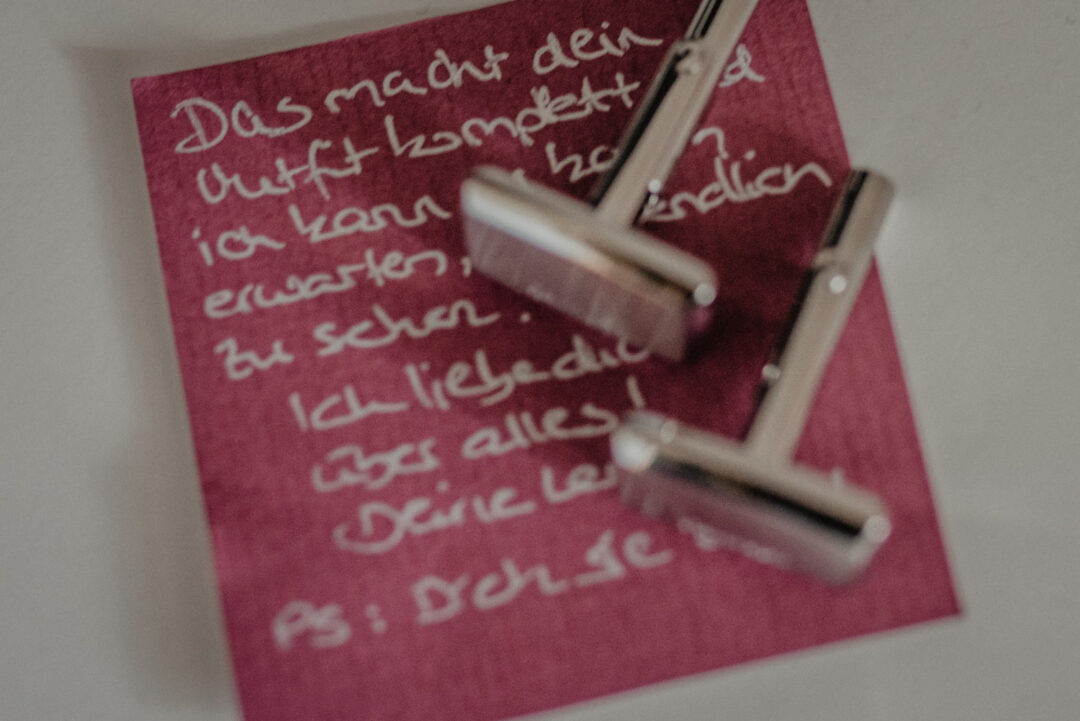 Das macht dein
Outfit komplett
ich kann
erwarten,
zu sehen.
Ich liebe dich
über alles!
Deine
PS: Dreh Sie